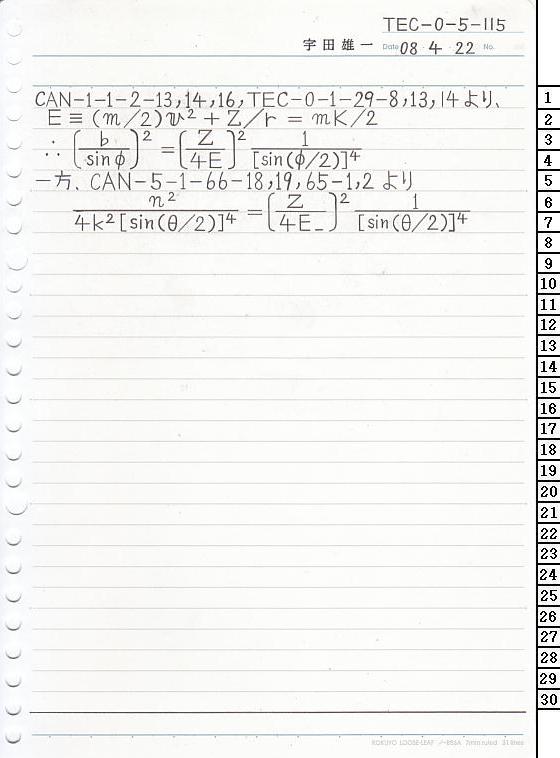 TEC-0-5-115
宇田雄一 Date 08・4・22 No.
CAN-1-1-2-13,14,16,TEC-0-1-29-8,13,14より、
E≡(m/2)v²+Z/r=mK/2
∴(b/sinφ)²=(Z/4E)² 1/[sin(φ/2)]⁴
一方、CAN-5-1-66-18,19,65-1,2より
n²/4k²[sin(θ/2)]⁴=(Z/4E_)² 1/[sin(θ/2)]⁴
KOKUYO LOOSE-LEAF ノ-836A 7mm ruled 31 lines
1
2
3
4
5
6
7
8
9
10
11
12
13
14
15
16
17
18
19
20
21
22
23
24
25
26
27
28
29
30